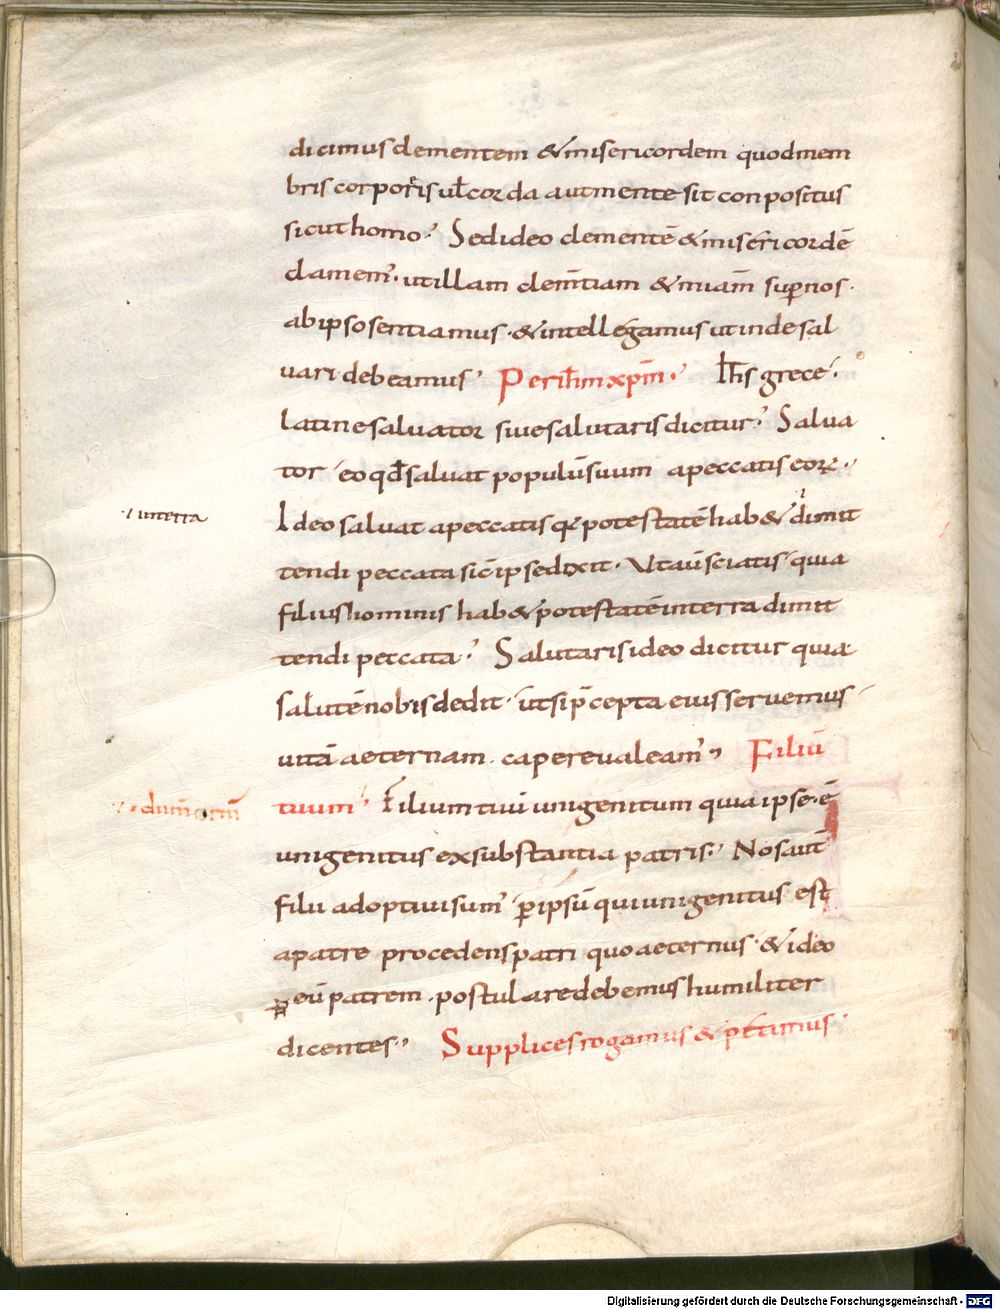 dicimus clementem & misericordem quod mem
bris corporis ul̄ corda aut mente sit conpositus
sicut homo. Sed ideo clementē & misericordē
clamem̄. ut illam clem̄tiam & m̄iam sup nos.
ab ipso sentiamus. & intellegamus ut inde sal
uari debeamus. Per ih̄m xp̄m. Ih̄s grece.
latine saluator siue salutaris dicitur. Salua
tor eo qd̄ saluat populū suum a peccatis eoꝝ.
.i. in terra
Ideo saluat a peccatis qꝛ potestatē hab& dimit
tendi peccata sic̄ ipse dixit. Ut aū sciatis quia
filius hominis hab& potestatē in terra dimit
tendi peccata. Salutaris ideo dicitur quia
salutē nobis dedit. ut si p̄cepta eius seruemus
uitā aeternam. capere ualeam̄. Filiū
dnm̄ nrm̄
tuum. Filium tuū unigenitum quia ipse. ē
unigenitus ex substantia patris. Nos aut̄
filii adoptiui sum̄ ꝑ ipsū qui unigenitus est
a patre procedens patri quo aeternus. & ideo
ꝑ eū patrem. postulare debemus humiliter
dicentes. Supplices rogamus & petimus
Digitalisierung gefördert durch die Deutsche Forschungsgemeinschaft - DFG